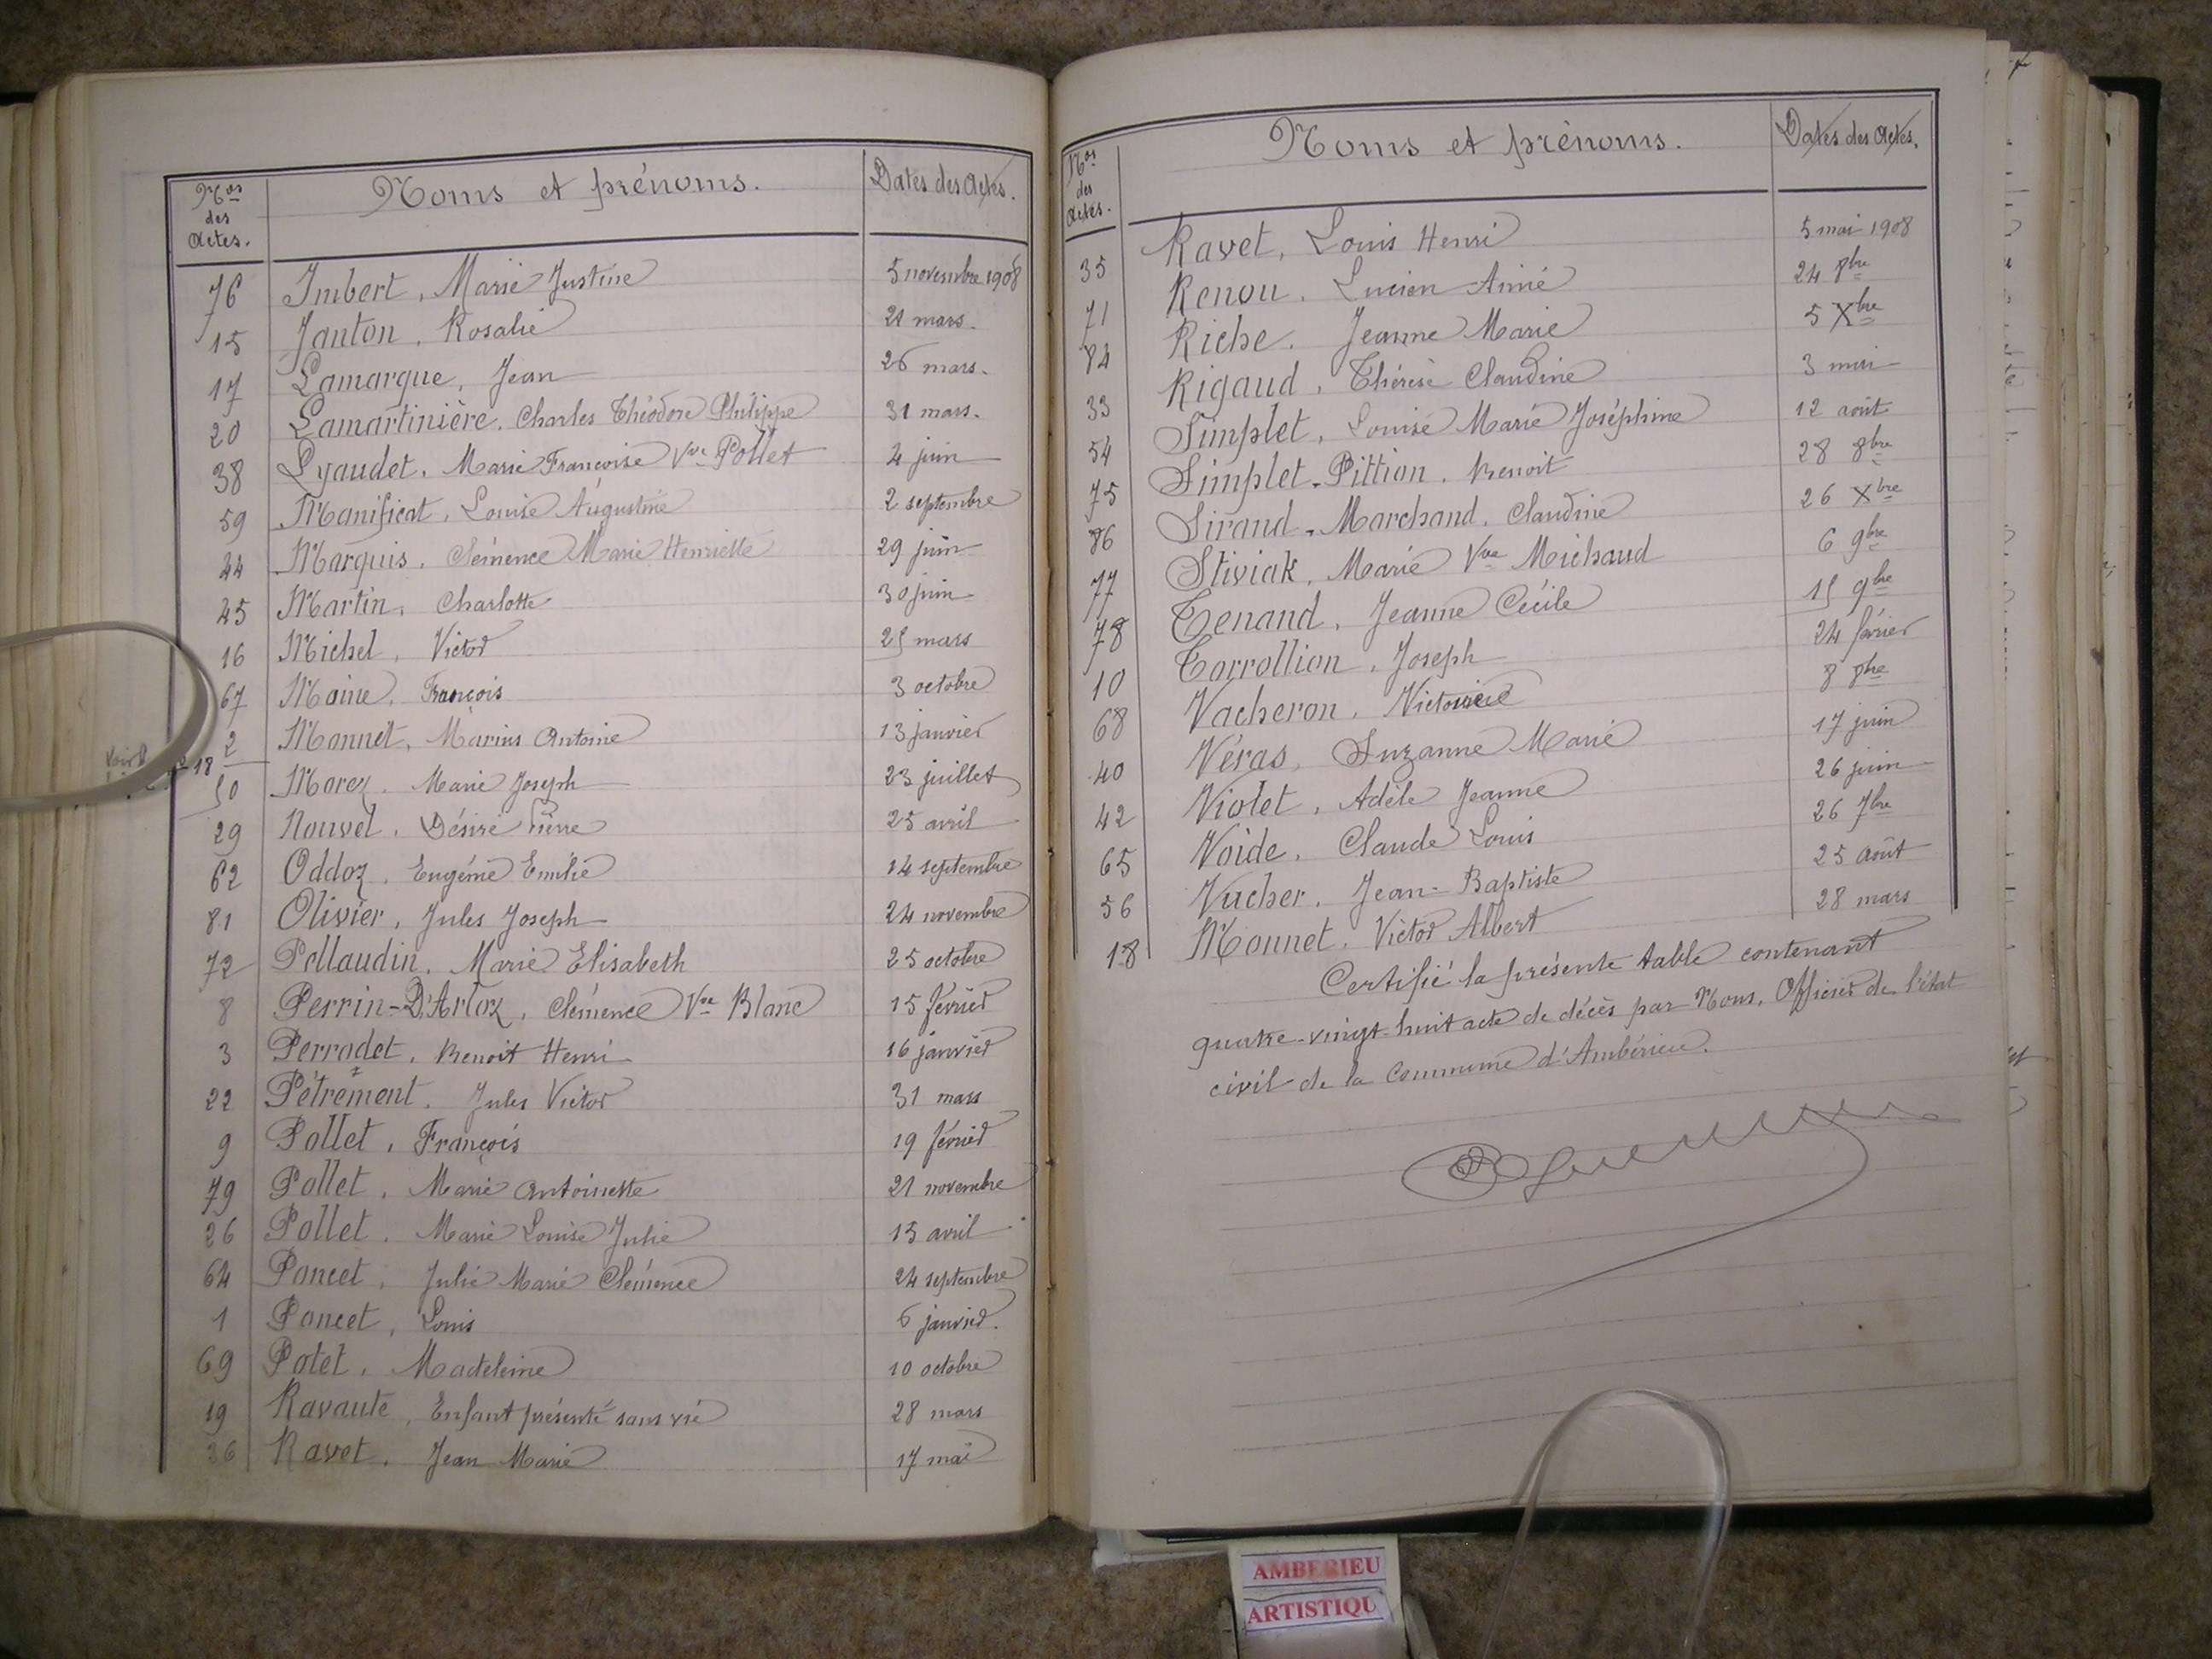 Nos
des
actes.
Noms et prénoms.
Dates des actes.
76 Imbert, Marie Justine 5 novembre 1908
15 Janton, Rosalie 21 mars.
17 Lamarque, Jean 26 mars.
20 Lamartinière, Charles Théodore Philippe 31 mars.
38 Lyaudet, Marie Françoise Vve Pollet 4 juin
59 Manificat, Louise Augustine 2 septembre
44 Marquis, Clémence Marie Henriette 29 juin
45 Martin, Charlotte 30 juin
16 Michel, Victor 25 mars
67 Moine, François 3 octobre
2 Monnet, Marius Antoine 13 janvier
18
50 Morez, Marie Joseph 23 juillet
29 Nouvel, Désiré Pierre 25 avril
62 Oddoz, Eugénie Emilie 14 septembre
81 Olivier, Jules Joseph 24 novembre
72 Pellaudin, Marie Elisabeth 25 octobre
8 Perrin-D'Arloz, Clémence Vve Blanc 15 février
3 Perrodet, Benoit Henri 16 janvier
22 Pétrement, Jules Victor 31 mars
9 Pollet, François 19 février
79 Pollet, Marie Antoinette 21 novembre
26 Pollet, Marie Louise Julie 15 avril
64 Poncet, Julie Marie Clémence 24 septembre
1 Poncet, Louis 6 janvier.
69 Potet, Madeleine 10 octobre
19 Ravaute, Enfant présenté sans vie 28 mars
36 Ravet, Jean Marie 17 mai
Nos
des
actes.
Noms et prénoms.
Dates des actes.
35 Ravet, Louis Henri 5 mai 1908
71 Renou, Lucien Aimé 24 8bre
84 Riche, Jeanne Marie 5 Xbre
33 Rigaud, Thérèse Claudine 3 mai
54 Simplet, Louise Marie Joséphine 12 août
75 Simplet-Pittion, Benoit 28 8bre
86 Sirand-Marchand, Claudine 26 Xbre
77 Stiviak, Marie Vve Michaud 6 9bre
78 Tenand, Jeanne Cécile 15 9bre
10 Torrollion, Joseph 24 février
68 Vacheron, Victoire 8 8bre
40 Véras, Suzanne Marie 17 juin
42 Violet, Adèle Jeanne 26 juin
65 Voide, Claude Louis 26 7bre
56 Vucher, Jean-Baptiste 25 août
18 Monnet, Victor Albert 28 mars
Certifié la présente table contenant
quatre-vingt-huit acte de décès par Nous, Officier de l'état
civil de la Commune d'Ambérieu.
AMBERIEU
ARTISTIQU